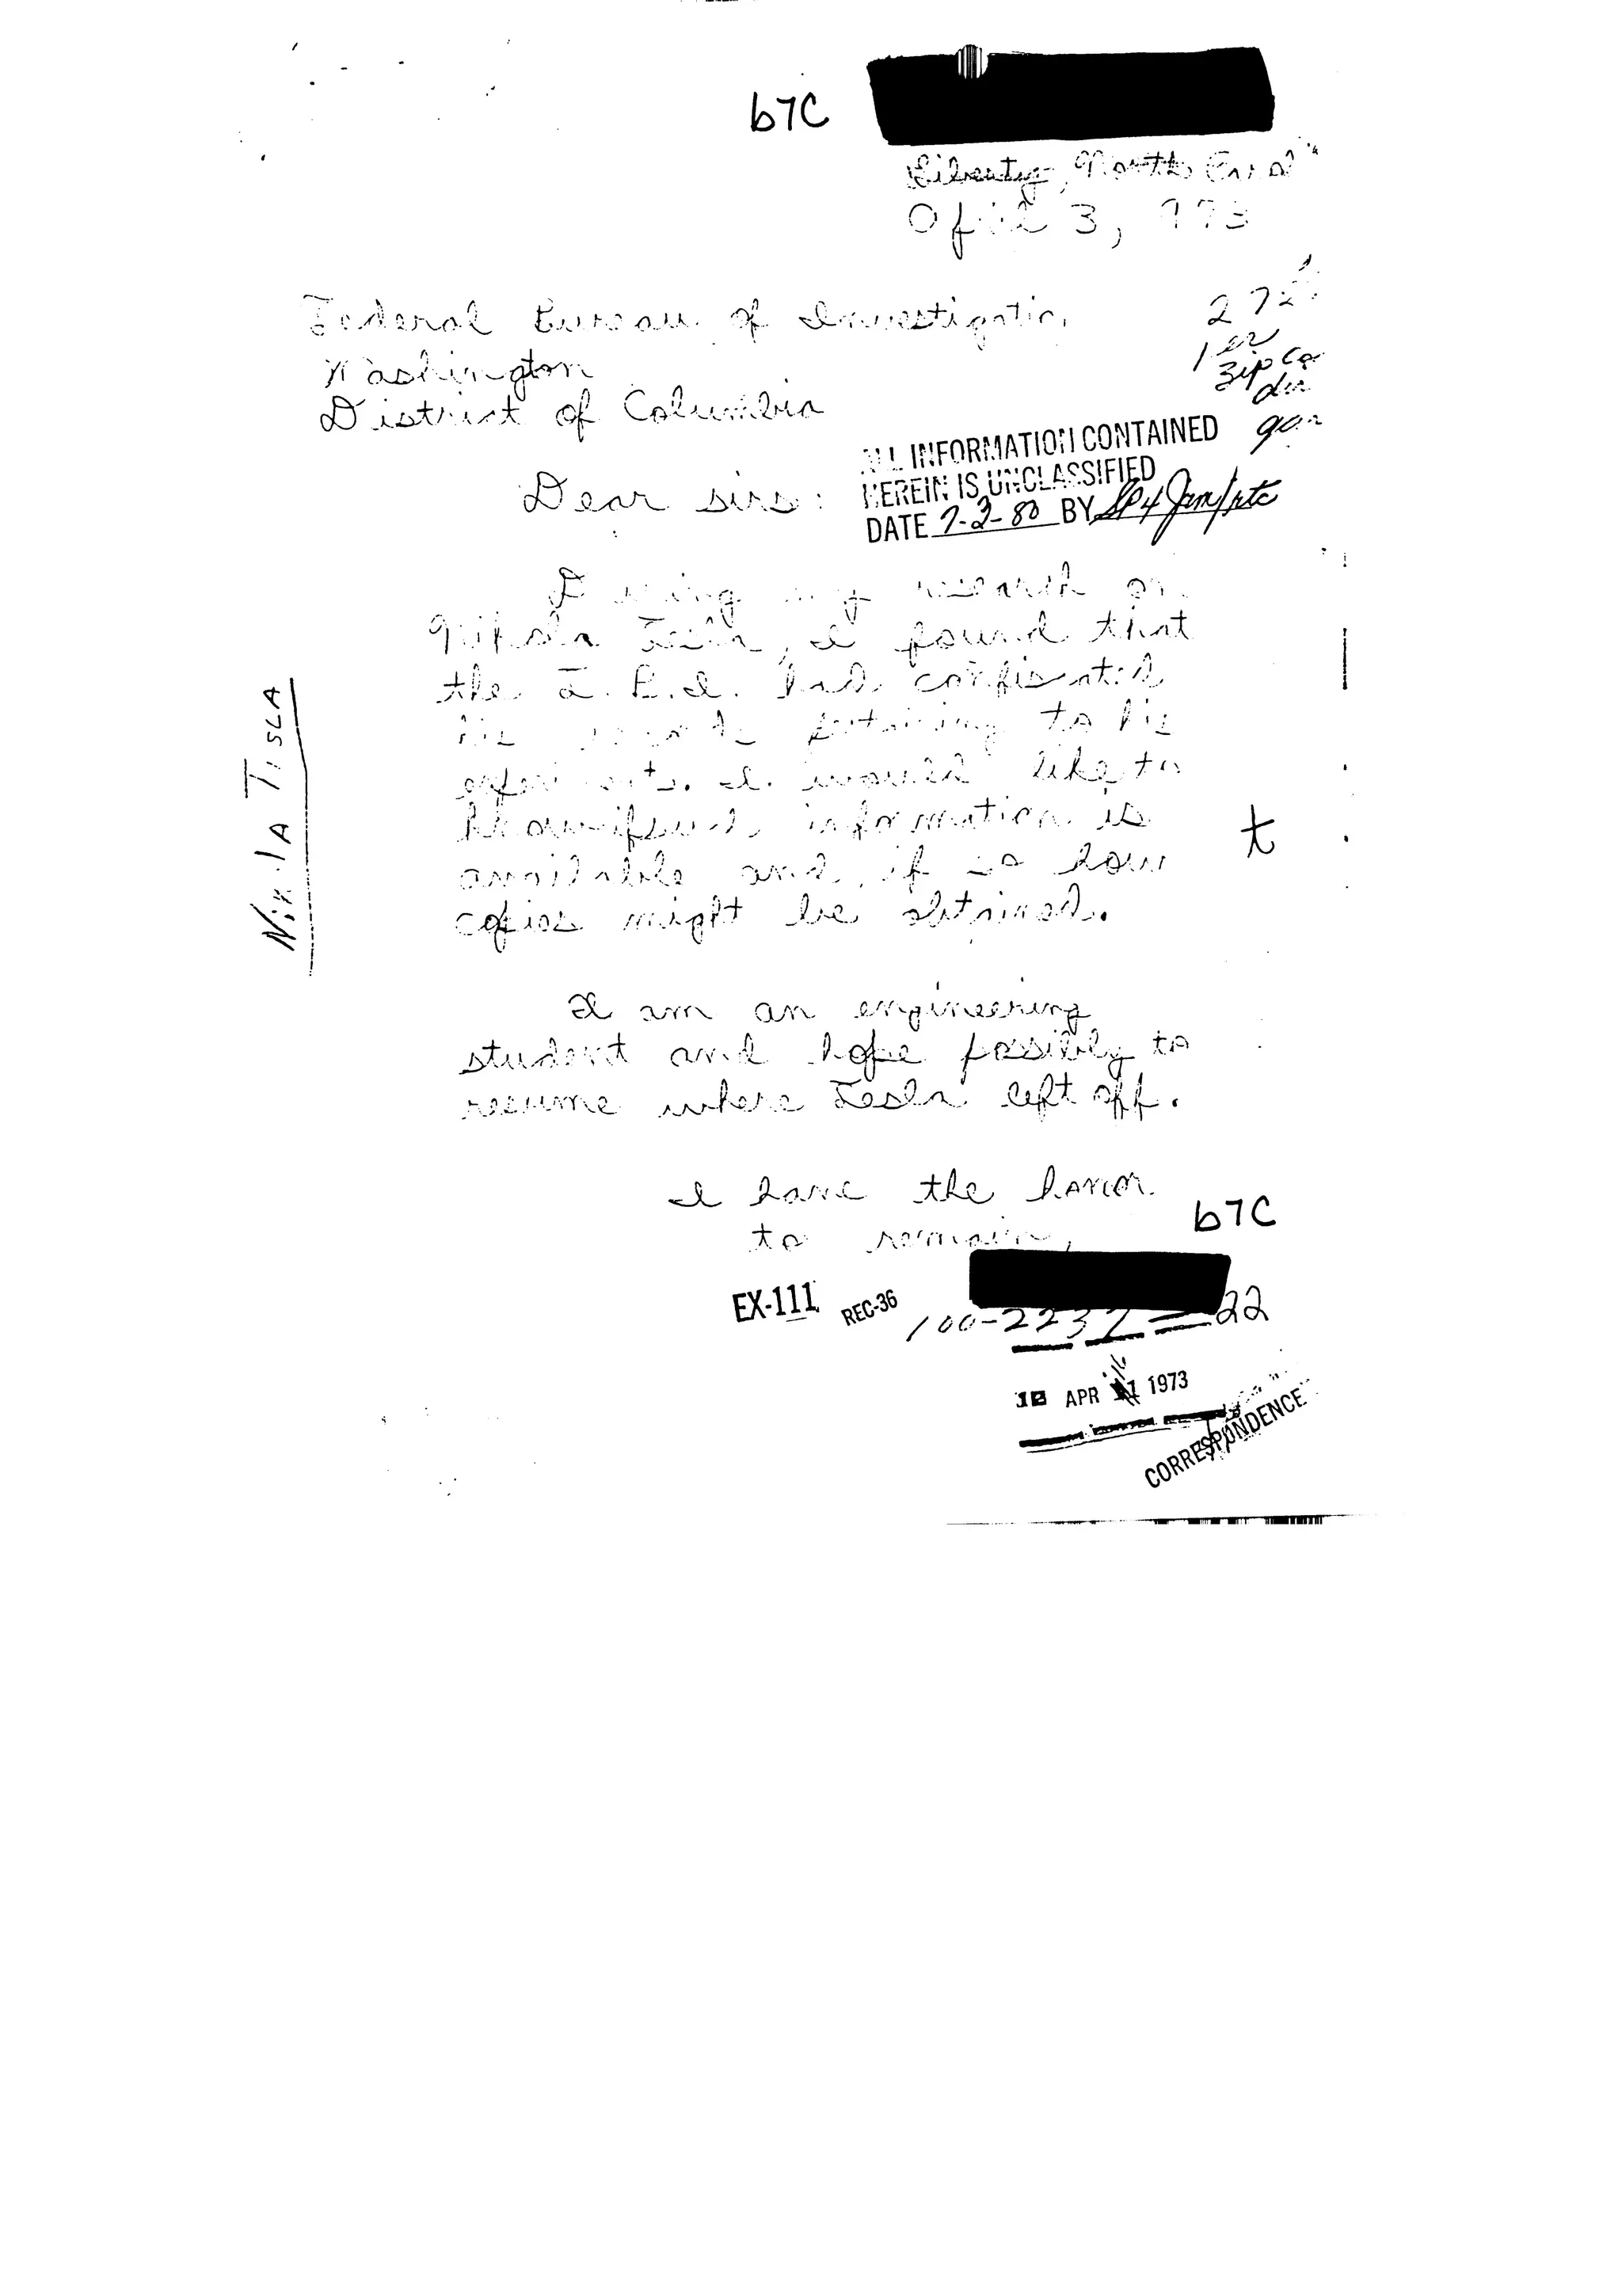 b7C
Liberty, North
April 3, 1973
Federal Bureau of Investigation
Washington
District of Columbia
272
zip
ALL INFORMATION CONTAINED
HEREIN IS UNCLASSIFIED
DATE 7-2-80 BY SP4
Dear sirs:
During my research on
Nikola Tesla, I found that
the F.B.I. had confiscated
his pertaining to his
I would like to
know if such information is
available and, if so how
copies might be obtained.
NIKOLA TESLA
t
I am an engineering
student and hope possibly to
resume where Tesla left off.
I have the honor
to remain,
b7C
EX-111 REC-36
100-2237-22
APR 1973
CORRESPONDENCE